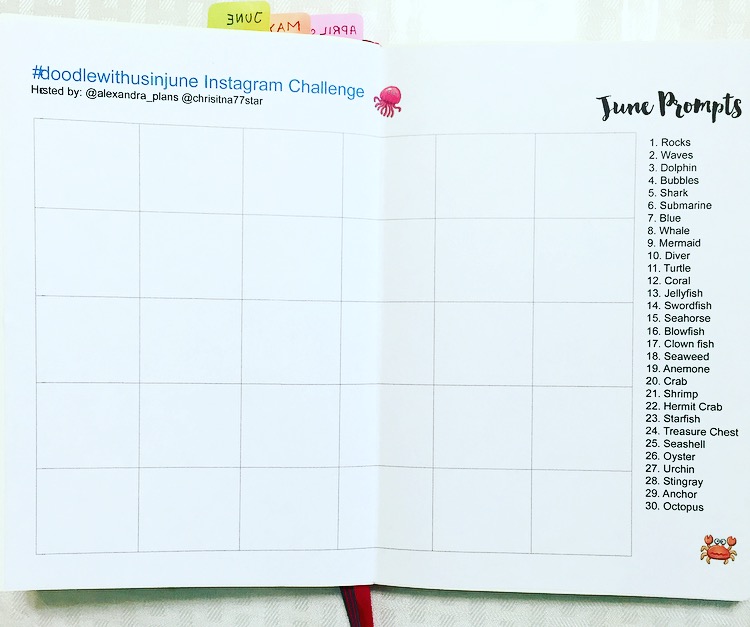 JUNE
MAY
APRIL
#doodlewithusinjune Instagram Challenge
Hosted by: @alexandra_plans @chrisitna77star
June Prompts
1. Rocks
2. Waves
3. Dolphin
4. Bubbles
5. Shark
6. Submarine
7. Blue
8. Whale
9. Mermaid
10. Diver
11. Turtle
12. Coral
13. Jellyfish
14. Swordfish
15. Seahorse
16. Blowfish
17. Clown fish
18. Seaweed
19. Anemone
20. Crab
21. Shrimp
22. Hermit Crab
23. Starfish
24. Treasure Chest
25. Seashell
26. Oyster
27. Urchin
28. Stingray
29. Anchor
30. Octopus